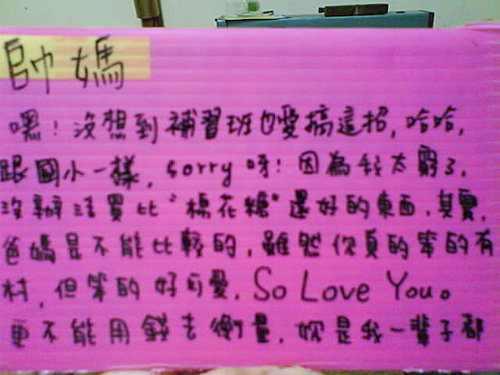 帥媽
嘿!沒想到補習班也愛搞這招,哈哈,
跟國小一樣,sorry呀!因為我太窮了,
沒辦法買比"棉花糖"還好的東西,其實,
爸媽是不能比較的,雖然你真的笨的有
村,但笨的好可愛,So Love You。
更不能用錢去衡量,妳是我一輩子都